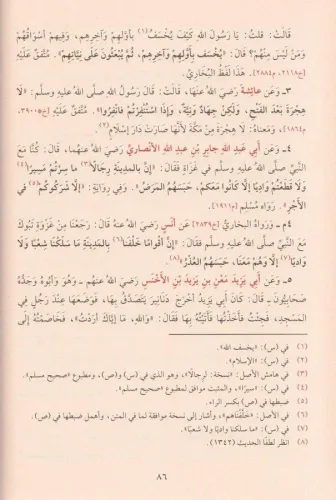 قَالَتْ: قلتُ: يَا رَسُولَ اللهِ كَيْفَ يُخْسَفُ(١) بِأَوَّلِهِمْ وَآخِرِهِمْ، وَفِيهِمْ أَسْوَاقُهُمْ
وَمَنْ لَيْسَ مِنْهُمْ؟ قَالَ: «يُخْسَفُ بِأَوَّلِهِمْ وَآخِرِهِمْ، ثُمَّ يُبْعَثُونَ عَلَى نِيَّاتِهِمْ». مُتَّفَقٌ عَلَيْهِ
[خ٢١١٨، م٢٨٨٤]. هَذَا لَفْظُ الْبُخَارِيِّ.
٣ـ وَعَن عائشةَ رَضِيَ اللهُ عنها، قَالَتْ: قَالَ رَسُولُ اللهِ صَلَّى اللهُ عليهِ وسلَّمَ: «لَا
هِجْرَةَ بَعْدَ الفَتْحِ، وَلَكِنْ جِهَادٌ وَنِيَّةٌ، وَإِذَا اسْتُنْفِرْتُمْ فَانْفِرُوا». مُتَّفَقٌ عَلَيْهِ [خ٣٩٠٠،
م١٨٦٤]. وَمَعناهُ: لَا هِجْرَةَ مِنْ مَكَّةَ لأَنَّهَا صَارَتْ دَارَ إِسْلَامٍ(٢).
٤ـ وَعَن أبي عبدِ اللهِ جابرِ بنِ عبدِ اللهِ الأنصاريِّ رَضِيَ اللهُ عنهما، قَالَ: كُنَّا مَعَ
النَّبيِّ صلَّى اللهُ عليهِ وسلَّم في غَزَاةٍ فَقَالَ: «إِنَّ بالمدِينَةِ رِجَالًا(٣) ما سِرْتُمْ مَسِيرًا(٤)
وَلَا قَطَعْتُمْ وَادِيًا إلَّا كَانُوا مَعكم، حَبَسَهُمُ المَرَضُ». وَفِي رِوَايَةٍ: «إِلَّا شَرَكُوكُمْ(٥) في
الأَجْرِ». رَوَاهُ مُسْلِم [م١٩١١].
ـ وَرَوَاهُ البخاريُّ [خ٢٨٣٩] عَن أَنَسٍ رَضِيَ اللهُ عَنهُ قَالَ: رَجَعْنَا مِنْ غَزْوَةِ تَبُوكَ
مَعَ النَّبِيِّ صَلَّى اللهُ عليهِ وسلَّم فَقَالَ: «إِنَّ أَقْوَامًا خَلْفَنَا(٦) بِالْمَدِينَةِ مَا سَلَكْنَا شِعْبًا وَلَا
وَادِيًا(٧) إِلَّا وَهُمْ مَعَنَا، حَبَسَهُمُ الْعُذْرُ»(٨).
٥ـ وَعَن أبي يَزِيدَ مَعْنِ بنِ يَزِيدَ بنِ الأَخْنَسِ رَضِيَ اللهُ عنهم ـ وَهو وَأبُوهُ وَجَدُّهُ
صَحَابِيُّونَ ـ قَالَ: كَانَ أبي يَزِيدُ أَخْرَجَ دَنَانِيرَ يَتَصَدَّقُ بِهَا، فَوَضَعَهَا عِنْدَ رَجُلٍ فِي
الْمَسْجِدِ، فَجِئْتُ فَأَخَذْتُهَا فَأَتَيْتُهُ بِهَا فَقَالَ: «وَاللهِ، مَا إِيَّاكَ أَرَدْتُ»، فَخَاصَمْتُهُ إِلَى
(١) في (س): «يخسف الله».
(٢) في (س): «الإسلام».
(٣) في هامش الأصل: «نسخة: لرجالًا»، وهو الذي في (س) و(ص)، ومطبوع «صحيح مسلم».
(٤) في (س): «سيرًا»، والمثبت موافق لمطبوع «صحيح مسلم».
(٥) ضبطها في (ص) بكسر الراء.
(٦) في الأصل: «خَلَّفْنَاهم»، وأشار إلى نسخة موافقة لما في المتن، وأهمل ضبطها في (ص).
(٧) في (س): «ما سلكنا واديًا ولا شعبًا».
(٨) انظر لطفًا الحديث (١٣٤٢).
٨٦